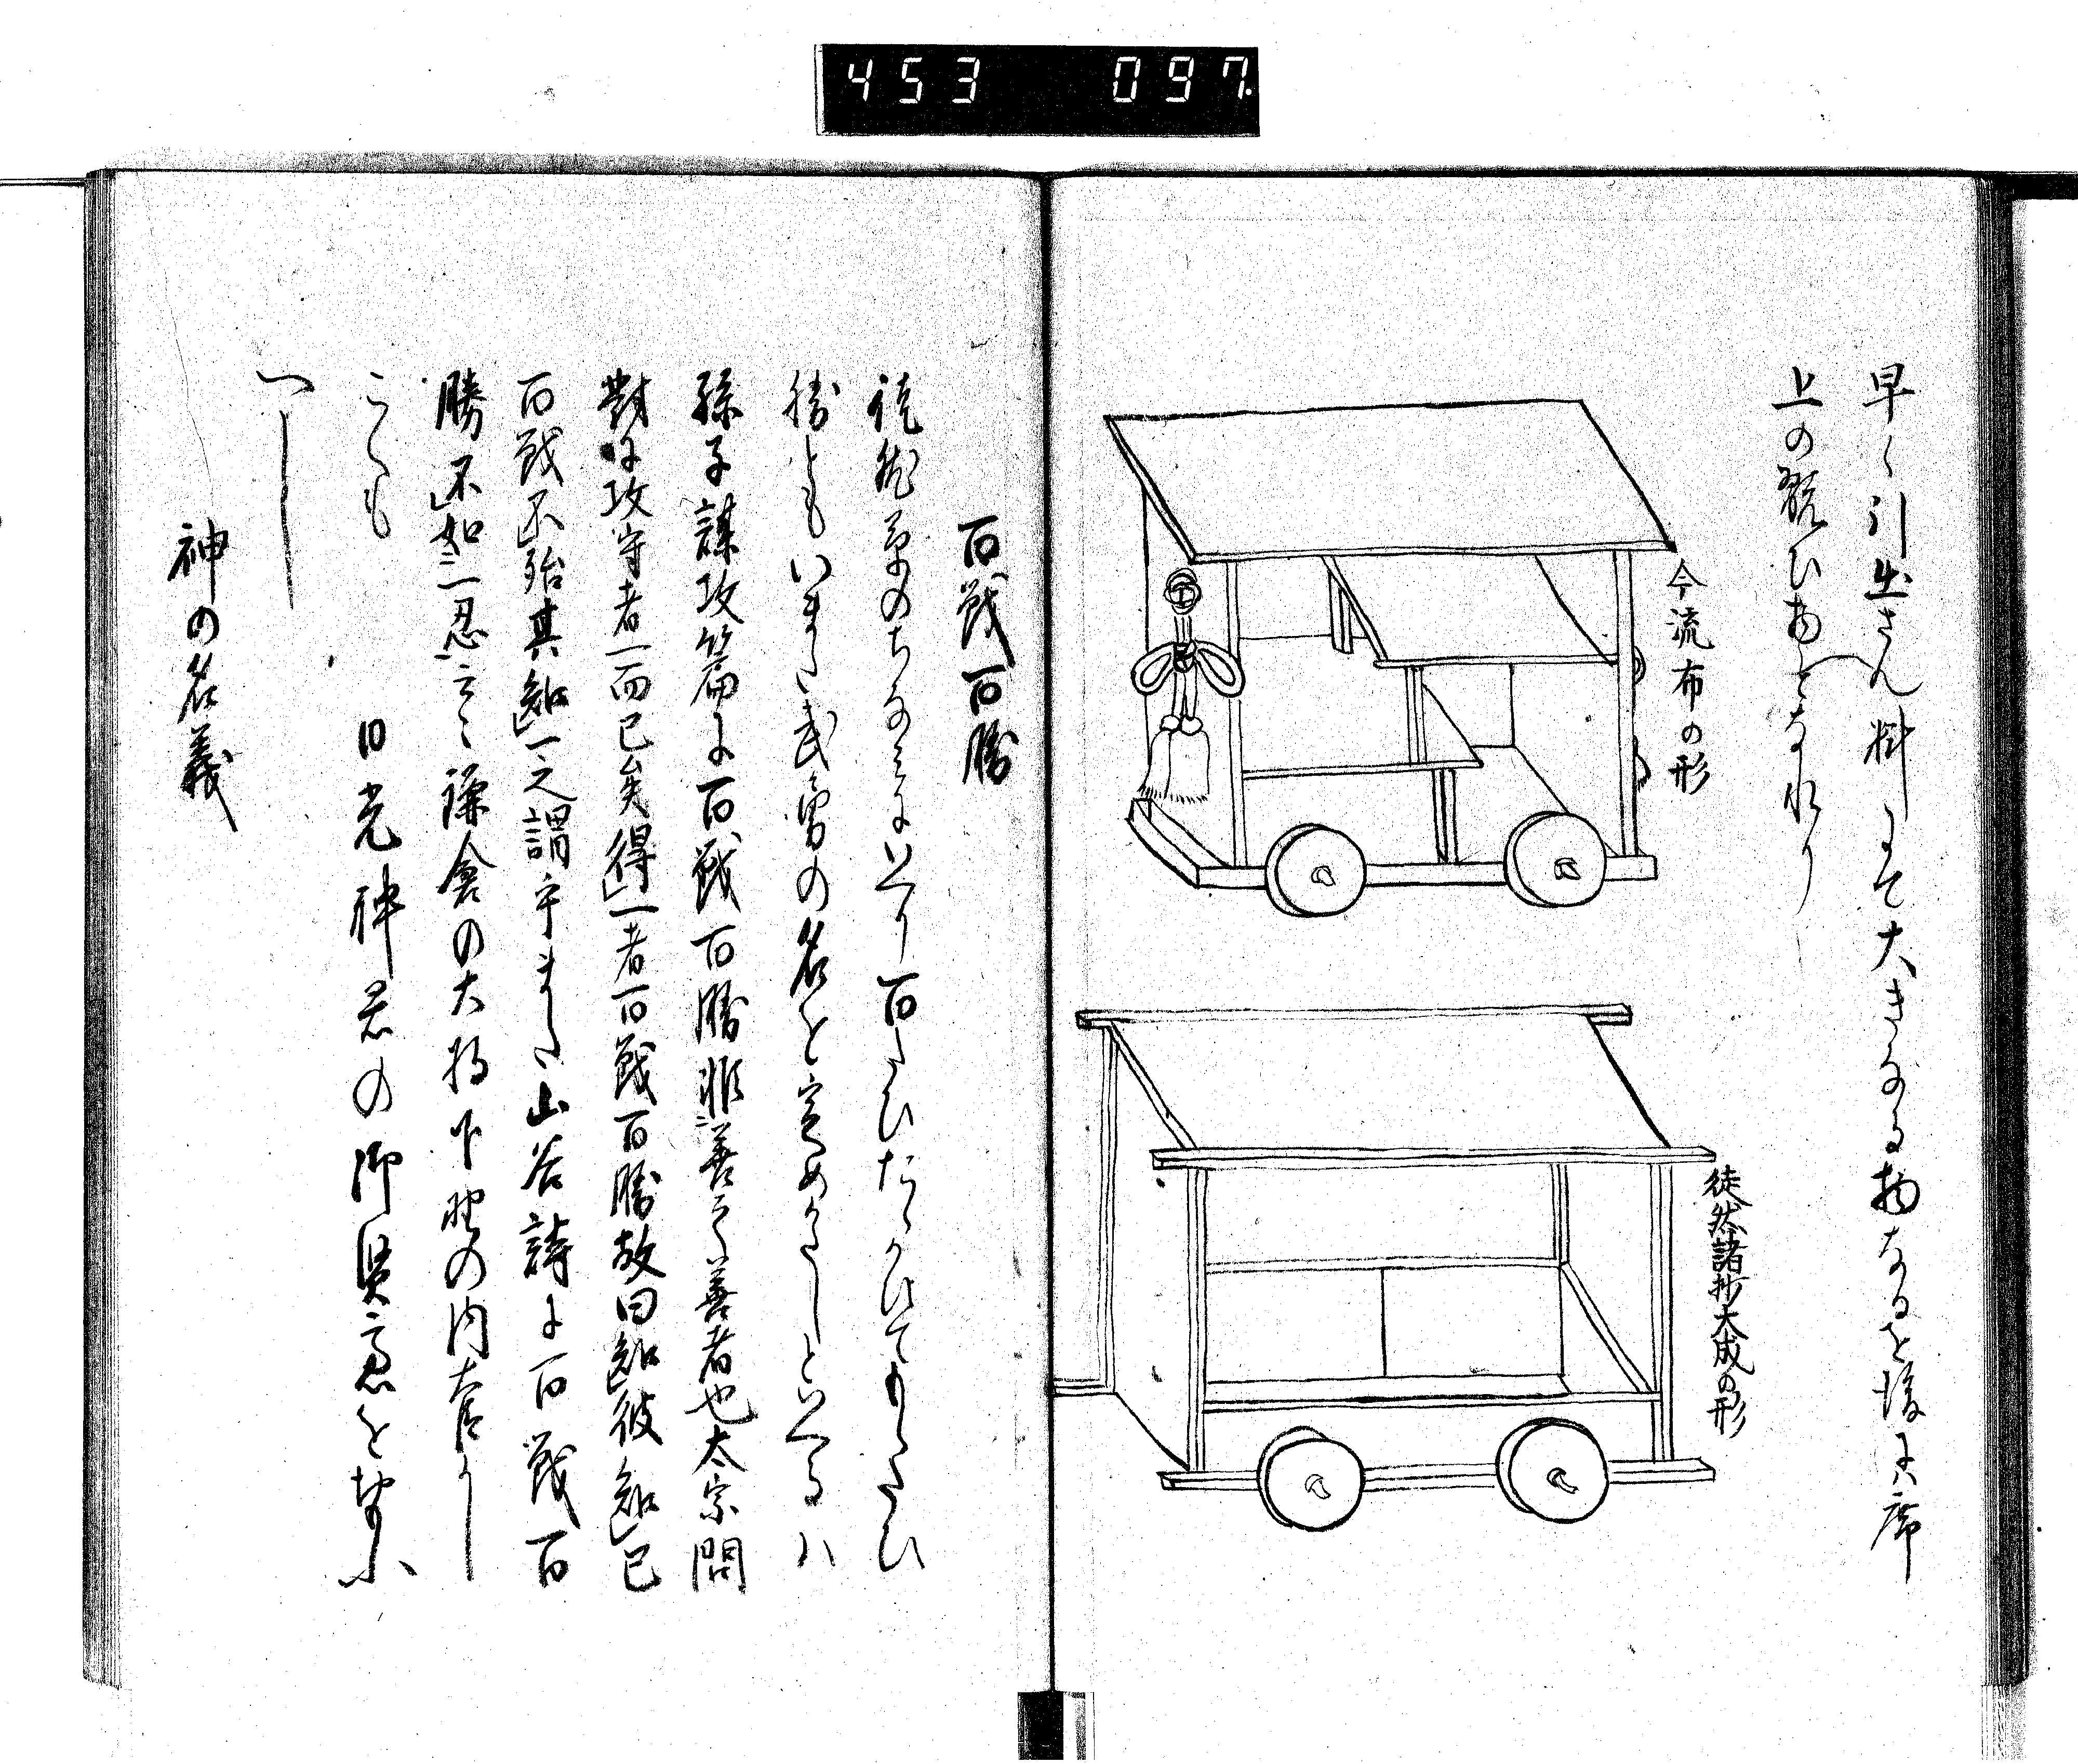 453 097
早く引出さん料にて大きなる物なるを後は席
上の翫ひ物となれり
今流布の形
徒然諸抄大成の形
百戦百勝
徒然草のちなみにいへり百たひたゝかひて百たひ
勝ともいまた武勇の名を定めかたしといへるハ
孫子謀攻篇に百戦百勝非善之善者也太宗問
對に攻守者一而已矣得一者百戦百勝故曰知彼知己
百戦不殆其知一之謂乎また山谷詩に百戦百
勝不如一忍云々鎌倉の大将下野の内
こゝも 日光神君の御賢慮を
へし
神の名義